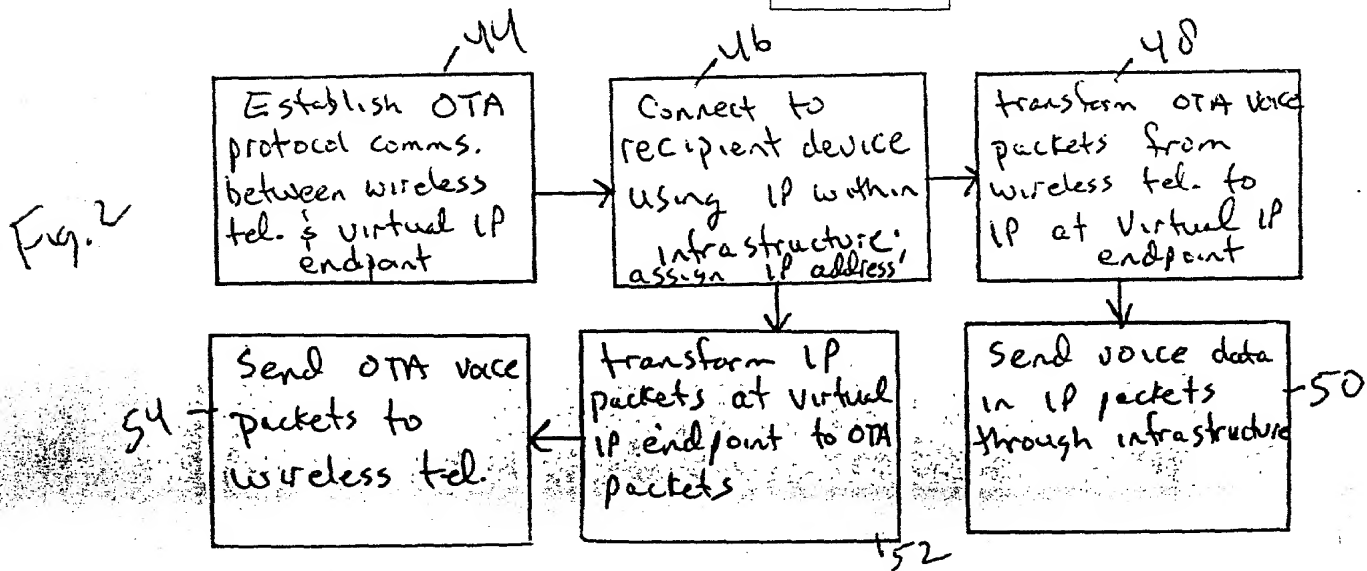 44
Establish OTA
protocol comms.
between wireless
tel. & virtual IP
endpoint
46
Connect to
recipient device
using IP within
infrastructure;
assign IP address
48
transform OTA voice
packets from
wireless tel. to
IP at virtual IP
endpoint
Fig. 2
54
Send OTA voice
packets to
wireless tel.
transform IP
packets at virtual
IP endpoint to OTA
packets
52
Send voice data
in IP packets
through infrastructure
50